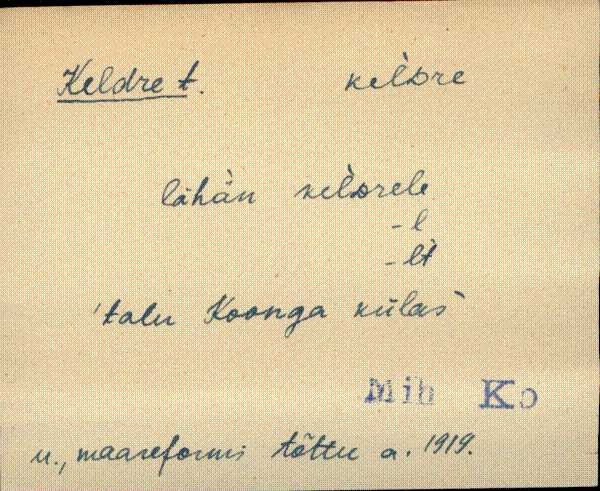 Keldre t. kel̀ᴅre
lähän kel̀ᴅrele
-l
-lt
'talu Koonga külas'
Mih Ko
u., maareformi tõttu a. 1919.